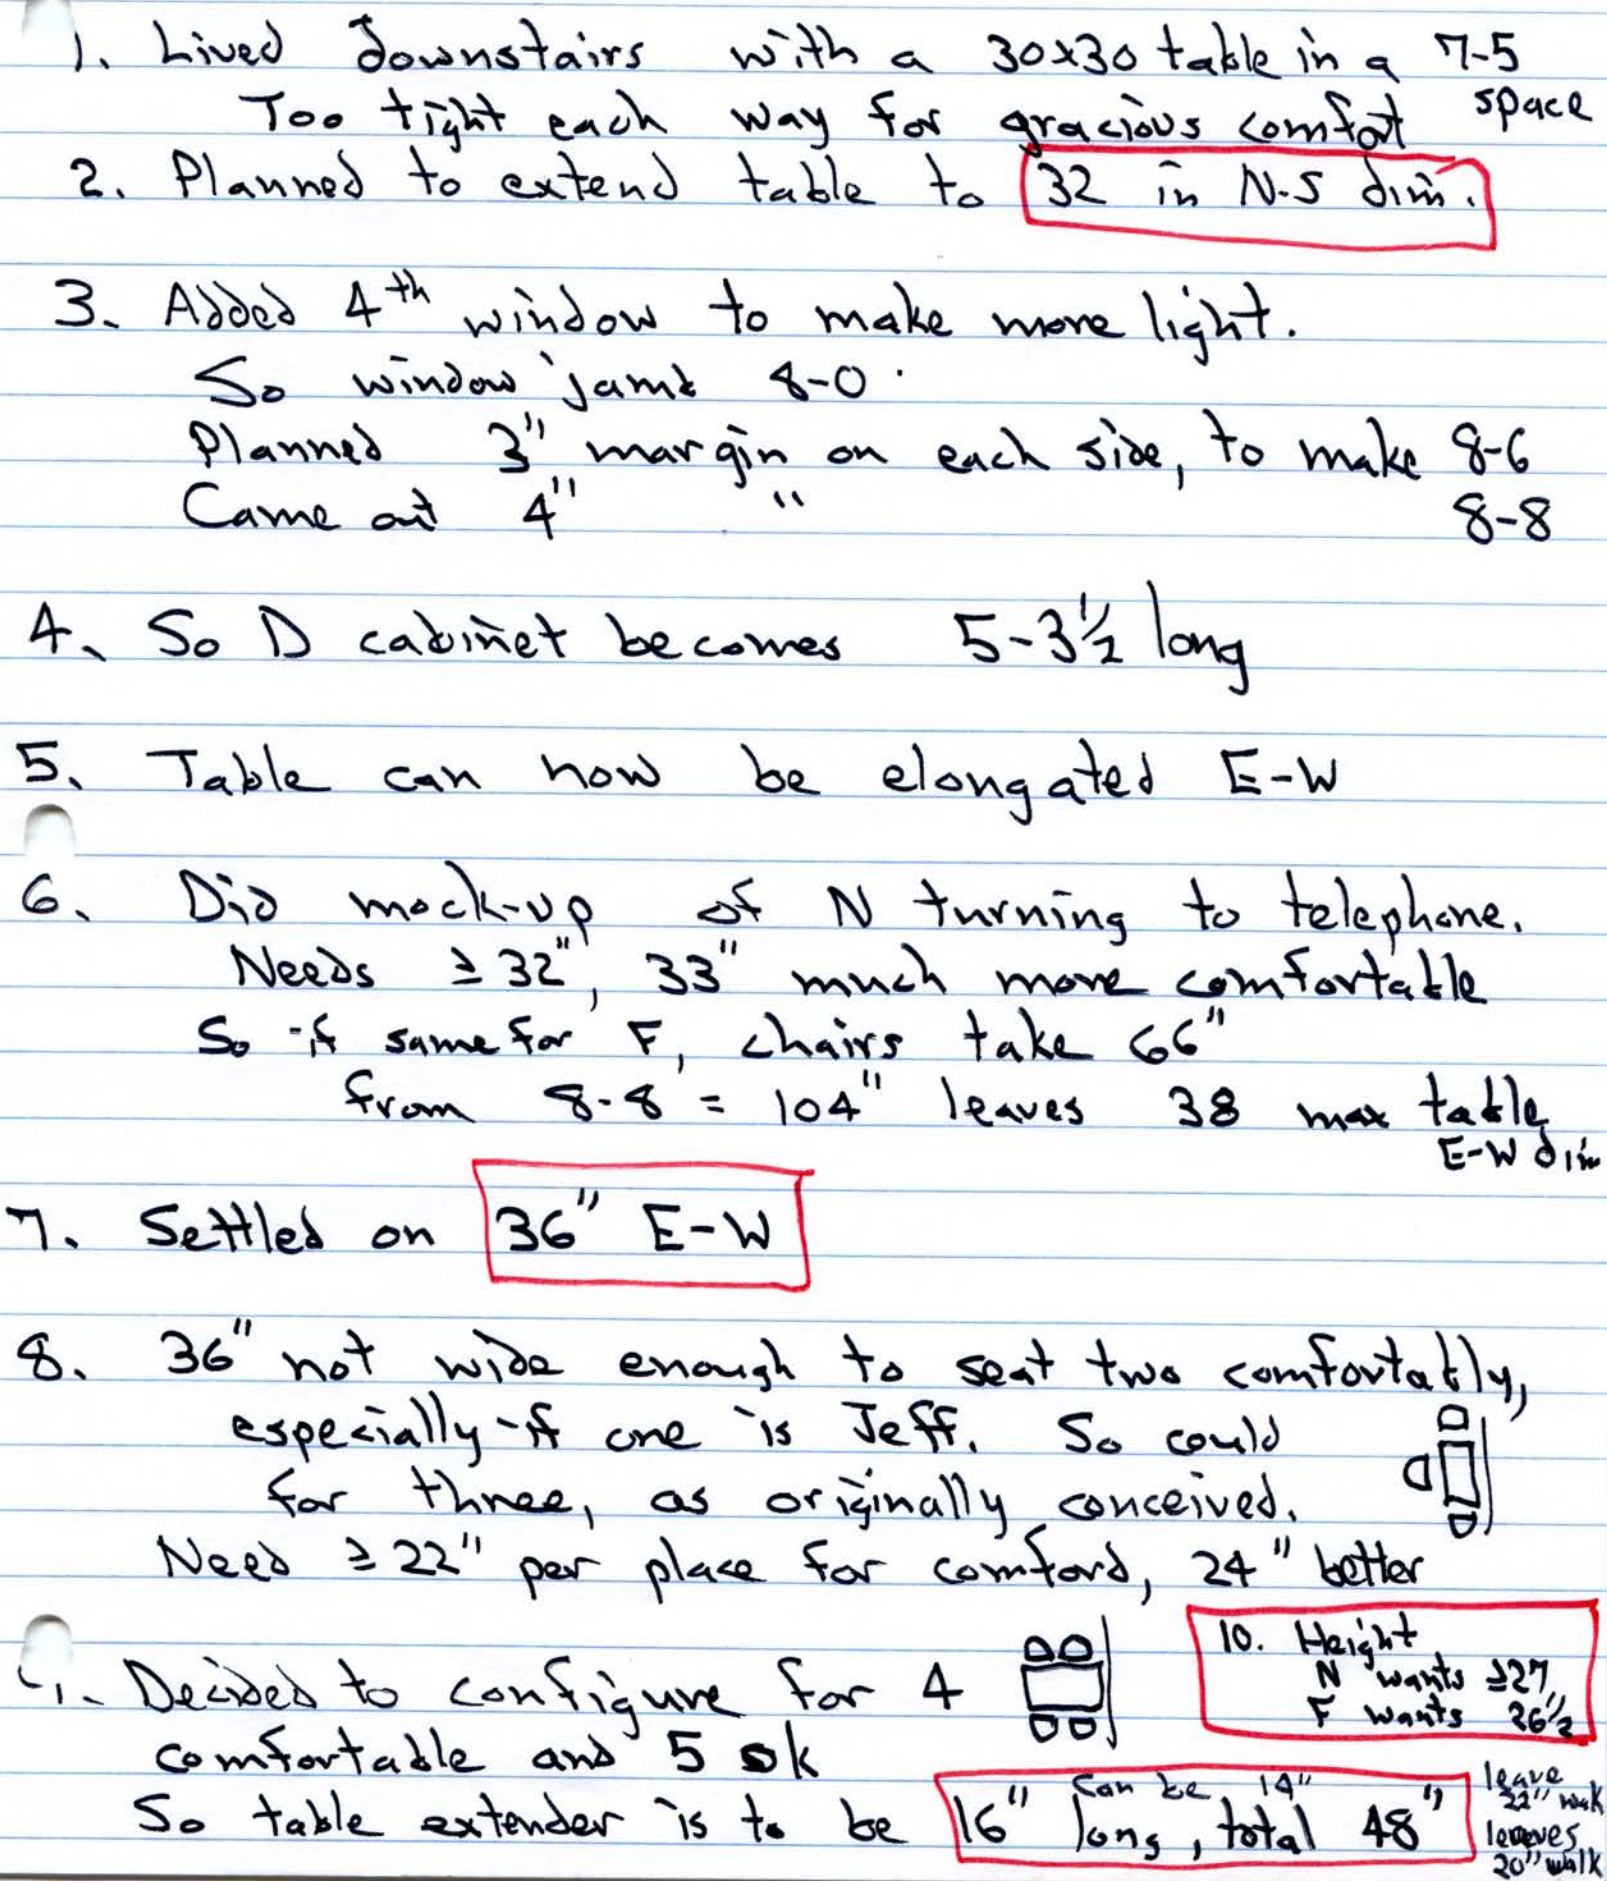 1. Lived downstairs with a 30x30 table in a 7-5 space
Too tight each way for gracious comfort
2. Planned to extend table to 32 in N-S dim.
3. Added 4th window to make more light.
So window jamb 8-0.
Planned 3" margin on each side, to make 8-6
Came out 4" " 8-8
4. So D cabinet becomes 5-3 1/2 long
5. Table can now be elongated E-W
6. Did mock-up of N turning to telephone.
Needs ≥ 32", 33" much more comfortable
So if same for F, chairs take 66"
from 8-8 = 104" leaves 38 max table
E-W dim
7. Settled on 36" E-W
8. 36" not wide enough to seat two comfortably,
especially if one is Jeff. So could
for three, as originally conceived.
Need ≥ 22" per place for comford, 24" better
9. Decided to configure for 4
comfortable and 5 ok
So table extender is to be 16" long, total 48"
can be 14"
leave
22" walk
leaves
20" walk
10. Height
N wants ≥27
F wants 26 1/2